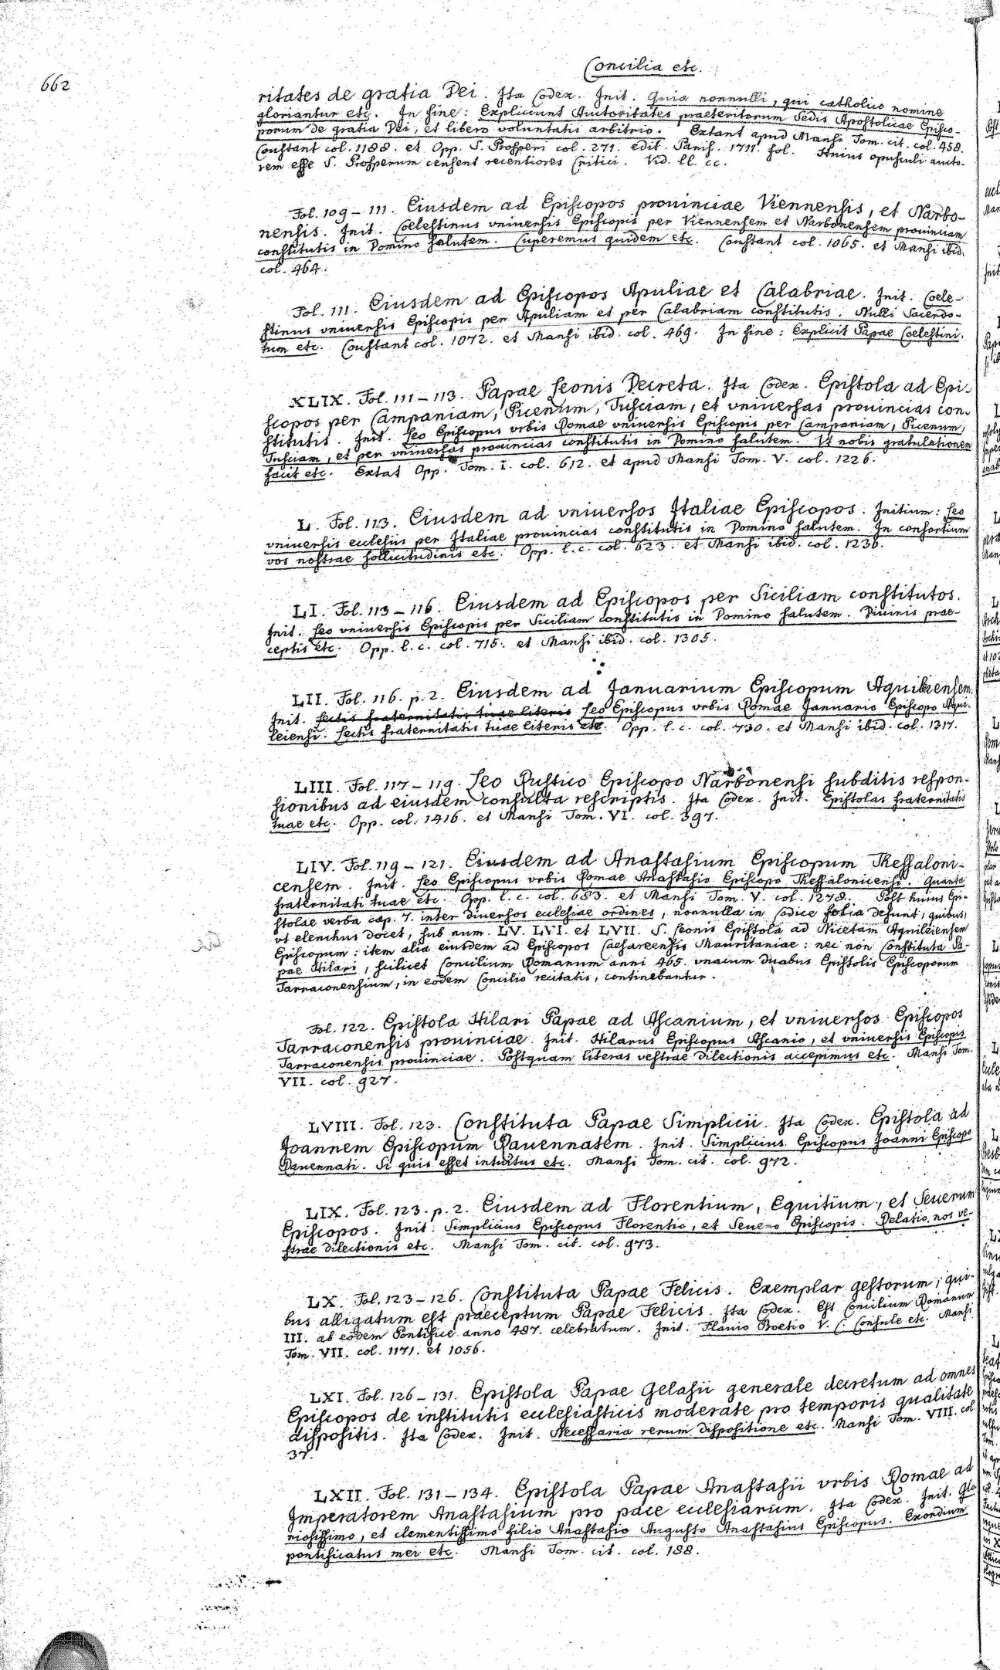 662
Concilia etc.
ritates de gratia Dei. Ita Codex. Init. Quia nonnulli, qui catholico nomine
gloriantur etc. In fine: Expliciunt Auctoritates praeteritorum Sedis Apostolicae Episco-
porum de gratia Dei, et libero voluntatis arbitrio. Extant apud Mansi Tom. cit. col. 458.
Coustant col. 1188. et Opp. S. Prosperi col. 271. edit. Paris. 1711 fol. Huius opusculi aucto-
rem esse S. Prosperum censent recentiores Critici. Vid. ll. cc.
Fol. 109-111. Eiusdem ad Episcopos prouinciae Viennensis, et Narbo-
nensis. Init. Coelestinus vniuersis Episcopis per Viennensem et Narbonensem prouinciam
constitutis in Domino salutem. Cuperemus quidem etc. Coustant col. 1065. et Mansi ibid.
col. 464.
Fol. 111. Eiusdem ad Episcopos Apuliae et Calabriae. Init. Coele-
stinus vniuersis Episcopis per Apuliam et per Calabriam constitutis. Nulli Sacerdo-
tum etc. Coustant col. 1072. et Mansi ibid. col. 469. In fine: Explicit Papae Coelestini.
XLIX. Fol. 111-113. Papae Leonis Decreta. Ita Codex. Epistola ad Epi-
scopos per Campaniam, Picenum, Tusciam, et vniuersas prouincias con-
stitutis. Init. Leo Episcopus vrbis Romae vniuersis Episcopis per Campaniam, Picenum,
Tusciam, et per vniuersas prouincias constitutis in Domino salutem. Vt nobis gratulationem
facit etc. Extat Opp. Tom. I. col. 612. et apud Mansi Tom. V. col. 1226.
L. Fol. 113. Eiusdem ad vniuersos Italiae Episcopos. Initium: Leo
vniuersis ecclesiis per Italiae prouincias constitutis in Domino salutem. In consortium
vos nostrae sollicitudinis etc. Opp. l. c. col. 623. et Mansi ibid. col. 1236.
LI. Fol. 113-116. Eiusdem ad Episcopos per Siciliam constitutos.
Init. Leo vniuersis Episcopis per Siciliam constitutis in Domino salutem. Diuinis prae-
ceptis etc. Opp. l. c. col. 715. et Mansi ibid. col. 1305.
LII. Fol. 116. p. 2. Eiusdem ad Januarium Episcopum Aquileiensem.
Init. Lectis fraternitatis tuae literis Leo Episcopus vrbis Romae Januario Episcopo Aqui-
leiensi. Lectis fraternitatis tuae literis etc. Opp. l. c. col. 730. et Mansi ibid. col. 1317.
LIII. Fol. 117-119. Leo Rustico Episcopo Narbonensi subditis respon-
sionibus ad eiusdem consulta rescriptis. Ita Codex. Init. Epistolas fraternitatis
tuae etc. Opp. col. 1416. et Mansi Tom. VI. col. 397.
LIV. Fol. 119-121. Eiusdem ad Anastasium Episcopum Thessaloni-
censem. Init. Leo Episcopus vrbis Romae Anastasio Episcopo Thessalonicensi. Quanta
fraternitati tuae etc. Opp. l. c. col. 683. et Mansi Tom. V. col. 1278. Post huius Epi-
stolae verba cap. 7. inter diuersos ecclesiae ordines, nonnulla in Codice folia desunt, quibus,
vt elenchus docet, sub num. LV. LVI. et LVII. S. Leonis Epistola ad Nicetam Aquileiensem
Episcopum: item alia eiusdem ad Episcopos Caesareensis Mauritaniae: nec non Constituta Pa-
pae Hilari, scilicet Concilium Romanum anni 465. vnacum duabus Epistolis Episcoporum
Tarraconensium, in eodem Concilio recitatis, continebantur.
Fol. 122. Epistola Hilari Papae ad Ascanium, et vniuersos Episcopos
Tarraconensis prouinciae. Init. Hilarus Episcopus Ascanio, et vniuersis Episcopis
Tarraconensis prouinciae. Postquam literas vestrae dilectionis accepimus etc. Mansi Tom.
VII. col. 927.
LVIII. Fol. 123. Constituta Papae Simplicii. Ita Codex. Epistola ad
Joannem Episcopum Rauennatem. Init. Simplicius Episcopus Joanni Episcopo
Rauennati. Si quis esset intuitus etc. Mansi Tom. cit. col. 972.
LIX. Fol. 123. p. 2. Eiusdem ad Florentium, Equitium, et Seuerum
Episcopos. Init. Simplicius Episcopus Florentio, et Seuero Episcopis. Relatio nos ve-
strae dilectionis etc. Mansi Tom. cit. col. 973.
LX. Fol. 123-126. Constituta Papae Felicis. Exemplar gestorum, qui-
bus alligatum est praeceptum Papae Felicis. Ita Codex. Est Concilium Romanum
III. ab eodem Pontifice anno 487. celebratum. Init. Flavio Boetio V. C. Consule etc. Mansi
Tom. VII. col. 1171. et 1056.
LXI. Fol. 126-131. Epistola Papae Gelasii generale decretum ad omnes
Episcopos de institutis ecclesiasticis moderate pro temporis qualitate
dispositis. Ita Codex. Init. Necessaria rerum dispositione etc. Mansi Tom. VIII. col
37.
LXII. Fol. 131-134. Epistola Papae Anastasii vrbis Romae ad
Imperatorem Anastasium pro pace ecclesiarum. Ita Codex. Init. Glo
riosissimo, et clementissimo filio Anastasio Augusto Anastasius Episcopus. Exordium
pontificatus mei etc. Mansi Tom. cit. col. 188.